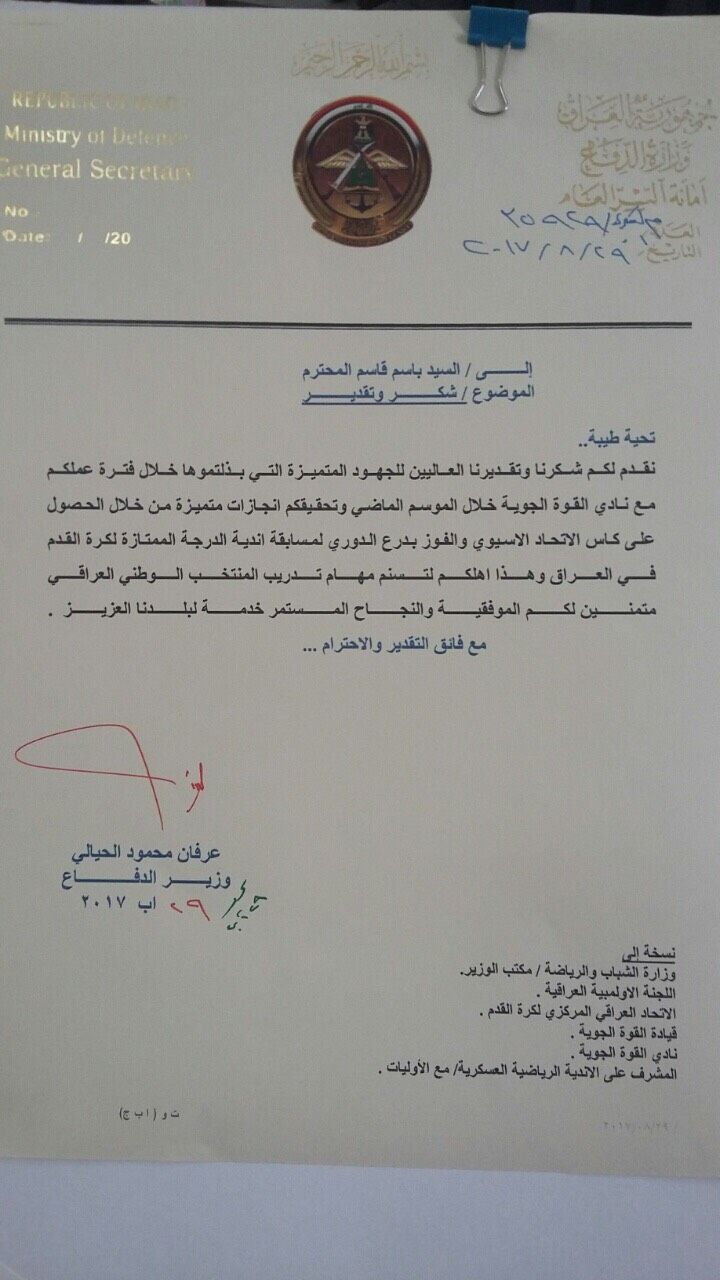 بسم الله الرحمن الرحيم
REPUBLIC OF IRAQ
Ministry of Defence
General Secretary
No :
Date: / /20
جمهورية العراق
وزارة الدفاع
أمانة السر العام
العدد
٢٥٩٢٩
التاريخ
٢٠١٧/٨/٢٩
إلــــى / السيد باسم قاسم المحترم
الموضوع / شكــــر وتقديــــر
تحية طيبة..
نقدم لكم شكرنا وتقديرنا العاليين للجهود المتميزة التي بذلتموها خلال فترة عملكم
مع نادي القوة الجوية خلال الموسم الماضي وتحقيقكم انجازات متميزة من خلال الحصول
على كاس الاتحاد الاسيوي والفوز بدرع الدوري لمسابقة اندية الدرجة الممتازة لكرة القدم
في العراق وهذا اهلكم لتسنم مهام تدريب المنتخب الوطني العراقي
متمنين لكم الموفقية والنجاح المستمر خدمة لبلدنا العزيز .
مع فائق التقدير والاحترام ...
عرفان محمود الحيالي
وزيــر الدفــــــاع
٢٩ اب ٢٠١٧
نسخة إلى
وزارة الشباب والرياضة / مكتب الوزير.
اللجنة الاولمبية العراقية .
الاتحاد العراقي المركزي لكرة القدم .
قيادة القوة الجوية .
نادي القوة الجوية .
المشرف على الاندية الرياضية العسكرية/ مع الأوليات .
ت و ( ا ب ج)
٢٠١٧/٠٨/٢٩ /